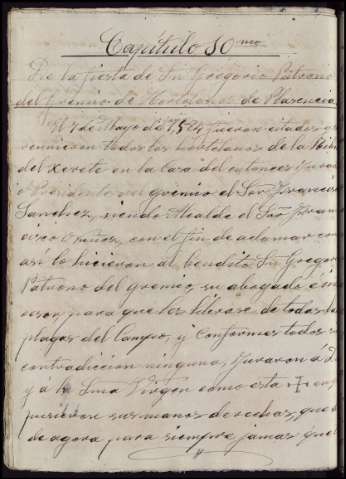 Capítulo 10 mo
De la fiesta de Sn Gregorio Patrono
del Gremio de Hortelanos de Plasencia
El 9 de Mayo de fueron citados y
reunieron todos los hortelanos de la
del xerete en la Casa del entonces
ó Presidente del gremio el Sor Francis
Sanchez, siendo Alcalde el Sor Fran
cisco con el fin de aclamar con
asi lo hicieron al bendito Sn Gregor
Patrono del Gremio, su abogado é in
cesor, para que los liberase de todas las
plagas del Campo, y conformes todos
contradiccion ninguna, juraron a D
y á la Sma Virgen como esta ✝ en
pusieron sus manos derechas, que
de agora para siempre jamas que